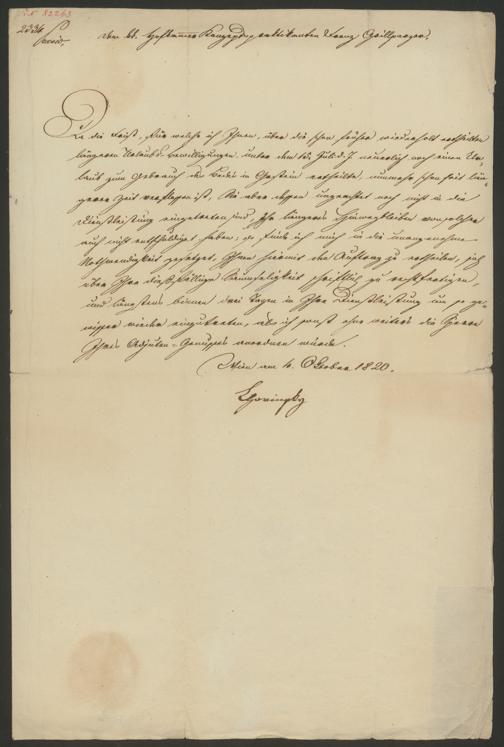 I.N. 82263
2334
praes.
Dem kk. Hofkammer Konzeptspraktikanten Franz Grillparzer.
Da die Frist, für welche ich Ihnen, über die schon früher wiederholt ertheilten
längeren Urlaubs-Bewilligungen, unter dem 15. Juli d. J. neuerlich noch einen Ur-
laub zum Gebrauch des Bades in Gastein ertheilte, nunmehr schon seit län-
gerer Zeit verstrichen ist, Sie aber dessen ungeachtet noch nicht in die
Dienstleistung eingetreten sind, Ihr längeres Hinwegbleiben von solcher
auch nicht entschuldiget haben; so finde ich mich in die unangenehme
Nothwendigkeit gesetzet, Ihnen hiermit den Auftrag zu ertheilen, sich
über Ihre dießfällige Saumseligkeit schriftlich zu rechtfertigen,
und längstens binnen drei Tagen in Ihre Dienstleistung um so ge-
wisser wieder einzutreten, als ich sonst ohne weiters die Sperre
Ihres Adjuten-Genußes anordnen würde.
Wien am 4. Oktober 1820.
Chorinsky